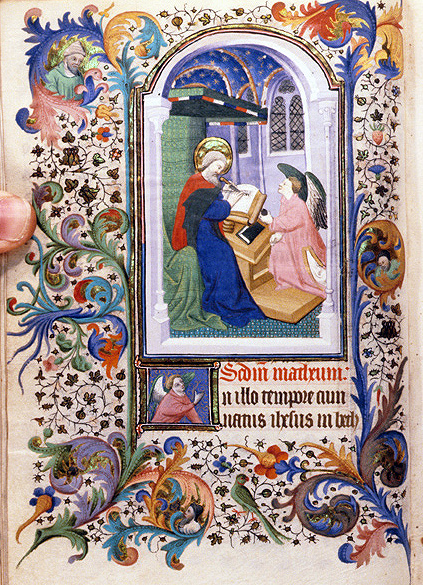 Scdm matheum:
In illo tempore cum
natus ihesus in beth